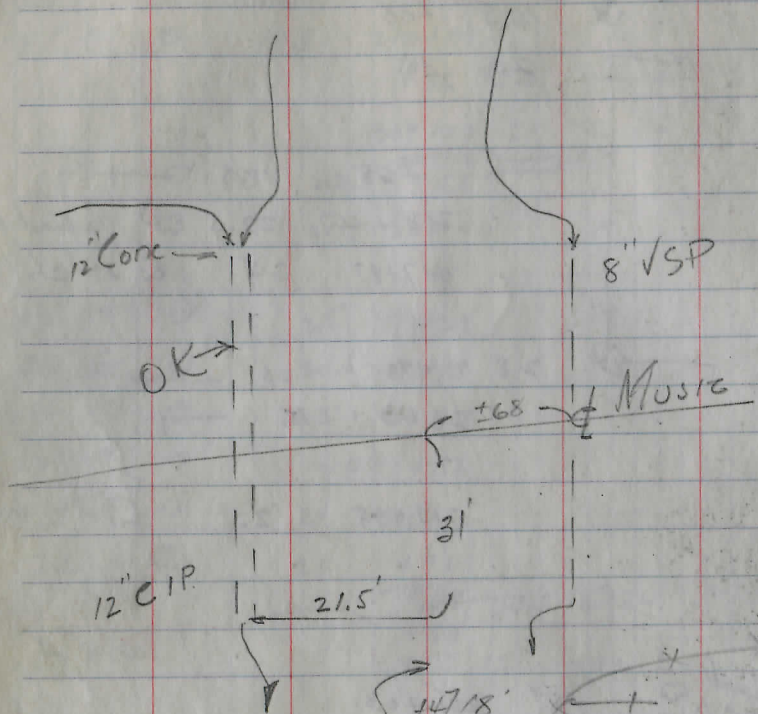 12" Conc
8" VSP
OK
±68
Music
31'
12" CIP
21.5'